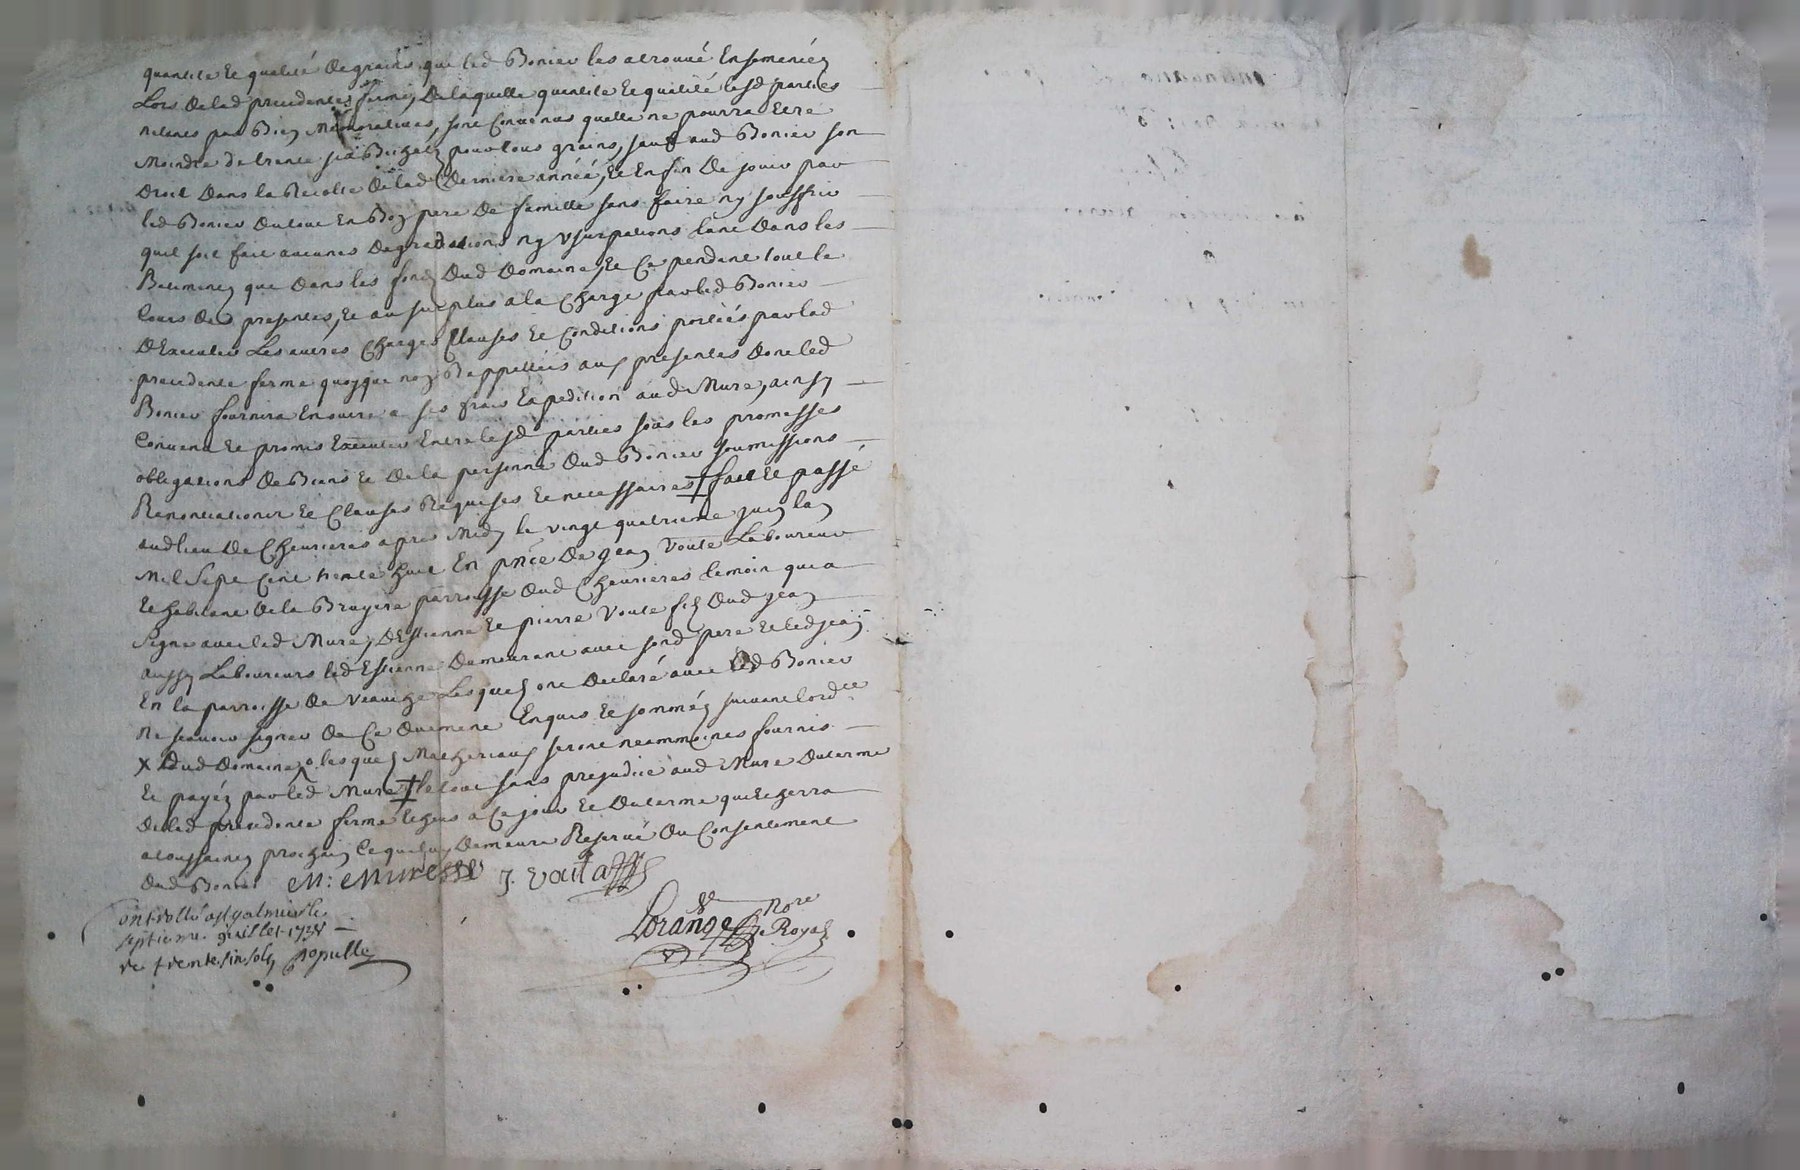 quantité et qualité de grains que led Bonier les a trouvé Ensemencéz
Lors de lad precedentes ferme, De laquelle quantité et qualité lesd parties
memoratives, sont Convenus quelle ne pourra Etre
Moindre de trente six Bichetz pour tous grains, sauf aud Bonier son
Droit Dans la Recolte de lad Derniere année, Et Enfin De jouir par
led Bonier du tout En Bon pere De famille sans faire ny souffrir
quil soit fait aucunes Degradations ny Usurpations tant Dans les
Batimens que Dans les fondz Dud Domaine, Et Ce pendant tout le
Cours des presentes, Et au surplus a la Charge par led Bonier
DExecuter Les autres Charges Clauses Et Conditions portéés par lad
precedente ferme quoyque non Rappelléés aux presentes Dont led
Bonier fournira En outre a ses frais Expedition aud Mure, ainsy
Convenu Et promis Executer Entre lesd parties sous les promesses
obligations De Biens Et De la personne Dud Bonier soumissions
Renonciations Et Clauses Requises Et necessaires ‡ fait Et passé
aud lieu De Chevrieres apres Midy le vingt quatrieme juin lan
Mil Sept Cent trente huit En pnce De jean Voute Laboureur
Et habitant De la Bruyere parroisse Dud Chevrieres temoin qui a
Signé avec led Mure, DEstienne Et pierre Voute fils Dud jean
aussy Laboureurs led Estienne Demeurant avec sond pere Et led jean
En la parroisse De Veauche Lesquels ont Declaré avec led Bonier
Ne scavoir signer De Ce Duement Enquis Et sommés suivant lordce
X Dud Domaine lesquels Matheriaux seront neammoines fournis
Et payéz par led Mure ‡ le tout sans prejudice aud Mure Du terme
De lad precedente ferme Echeus a Ce jour Et Du terme qui Echerra
a toussaines prochain Ce qui luy Demeure Reservé Du Consentement
Dud Bonier M: Mure J. Vouta
Lorange Nore Royal
Controllé a St galmier le
septieme juillet 1738
re trente six sols Populle